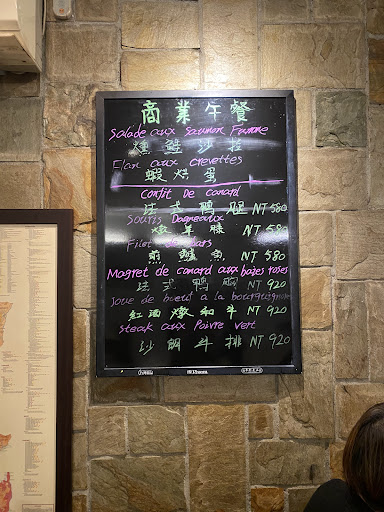 商業午餐
Salade aux Saumon Fumme
燻鮭沙拉
Flan aux crevettes
蝦烘蛋
Confit De Canard
法式鴨腿 NT 580
Souris Dagneaux
燉羊膝 NT 580
Filet bars
煎鱸魚 NT 580
Magret de canard aux baies roses
法式鴨胸 NT 920
Joue de boeuf a la bourguignonne
紅酒燉和牛 NT 920
Steak aux Poivre vert
沙朗牛排 NT 920